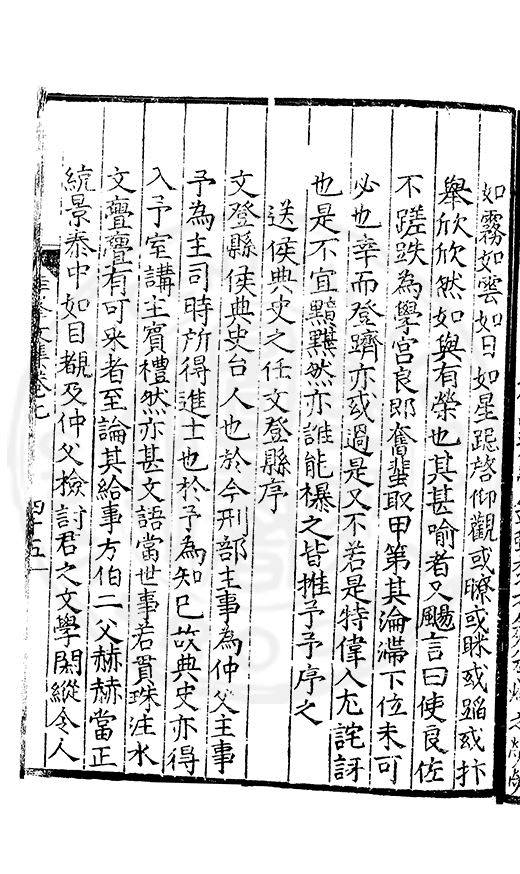 如霧如雲如日如星跽啓仰觀或瞭或眯或蹈或抃
舉欣欣然如與有榮也其甚喻者又颺言曰使良佐
不蹉跌為學宫良郎奮蜚取甲第其淪灟下位未可
必也幸而登躋亦或過是又不若是特偉人尤詫訝
也是不宜黯黮然亦誰能㬥之皆推予予序之
送侯典史之任文登縣序
文登縣侯典史台人也於今刑部主事為仲父主事
予為主司時所得進士也於予為知已故典史亦得
入予室講主賓禮然亦甚文語當世事若貫珠注水
文亹亹有可采者至論其給事方伯二父赫赫當正
統景泰中如目覩及仲父檢討君之文學閎縱令人
文集卷七
四十五